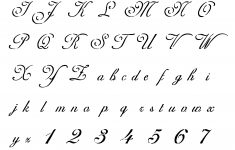 I J K L M N O
P Q R S T U V W
X Y Z a b c d e f g h i
j k l m n o p q r s t u v w x
y z 1 2 3 4 5 6 7